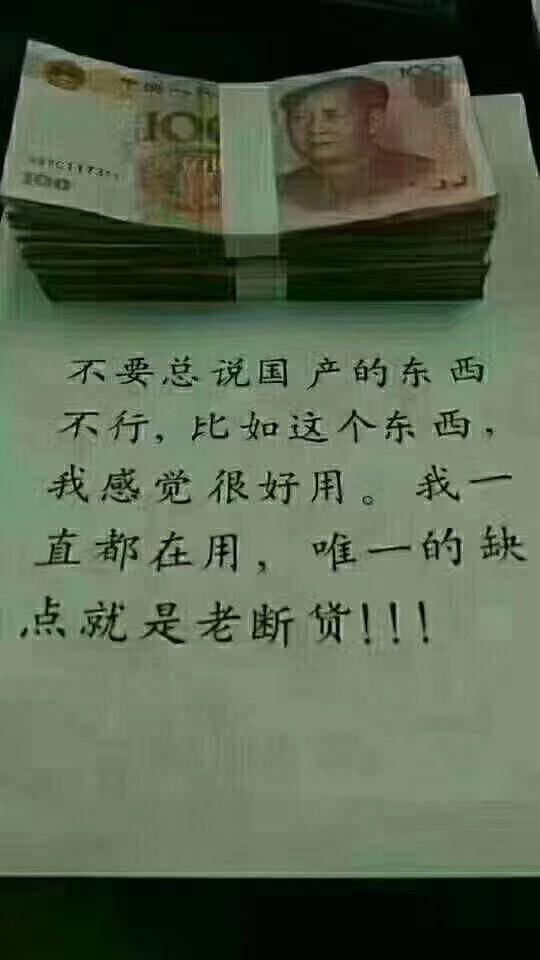 100
中国
100
100
不要总说国产的东西
不行，比如这个东西，
我感觉很好用。我一
直都在用，唯一的缺
点就是老断货!!!